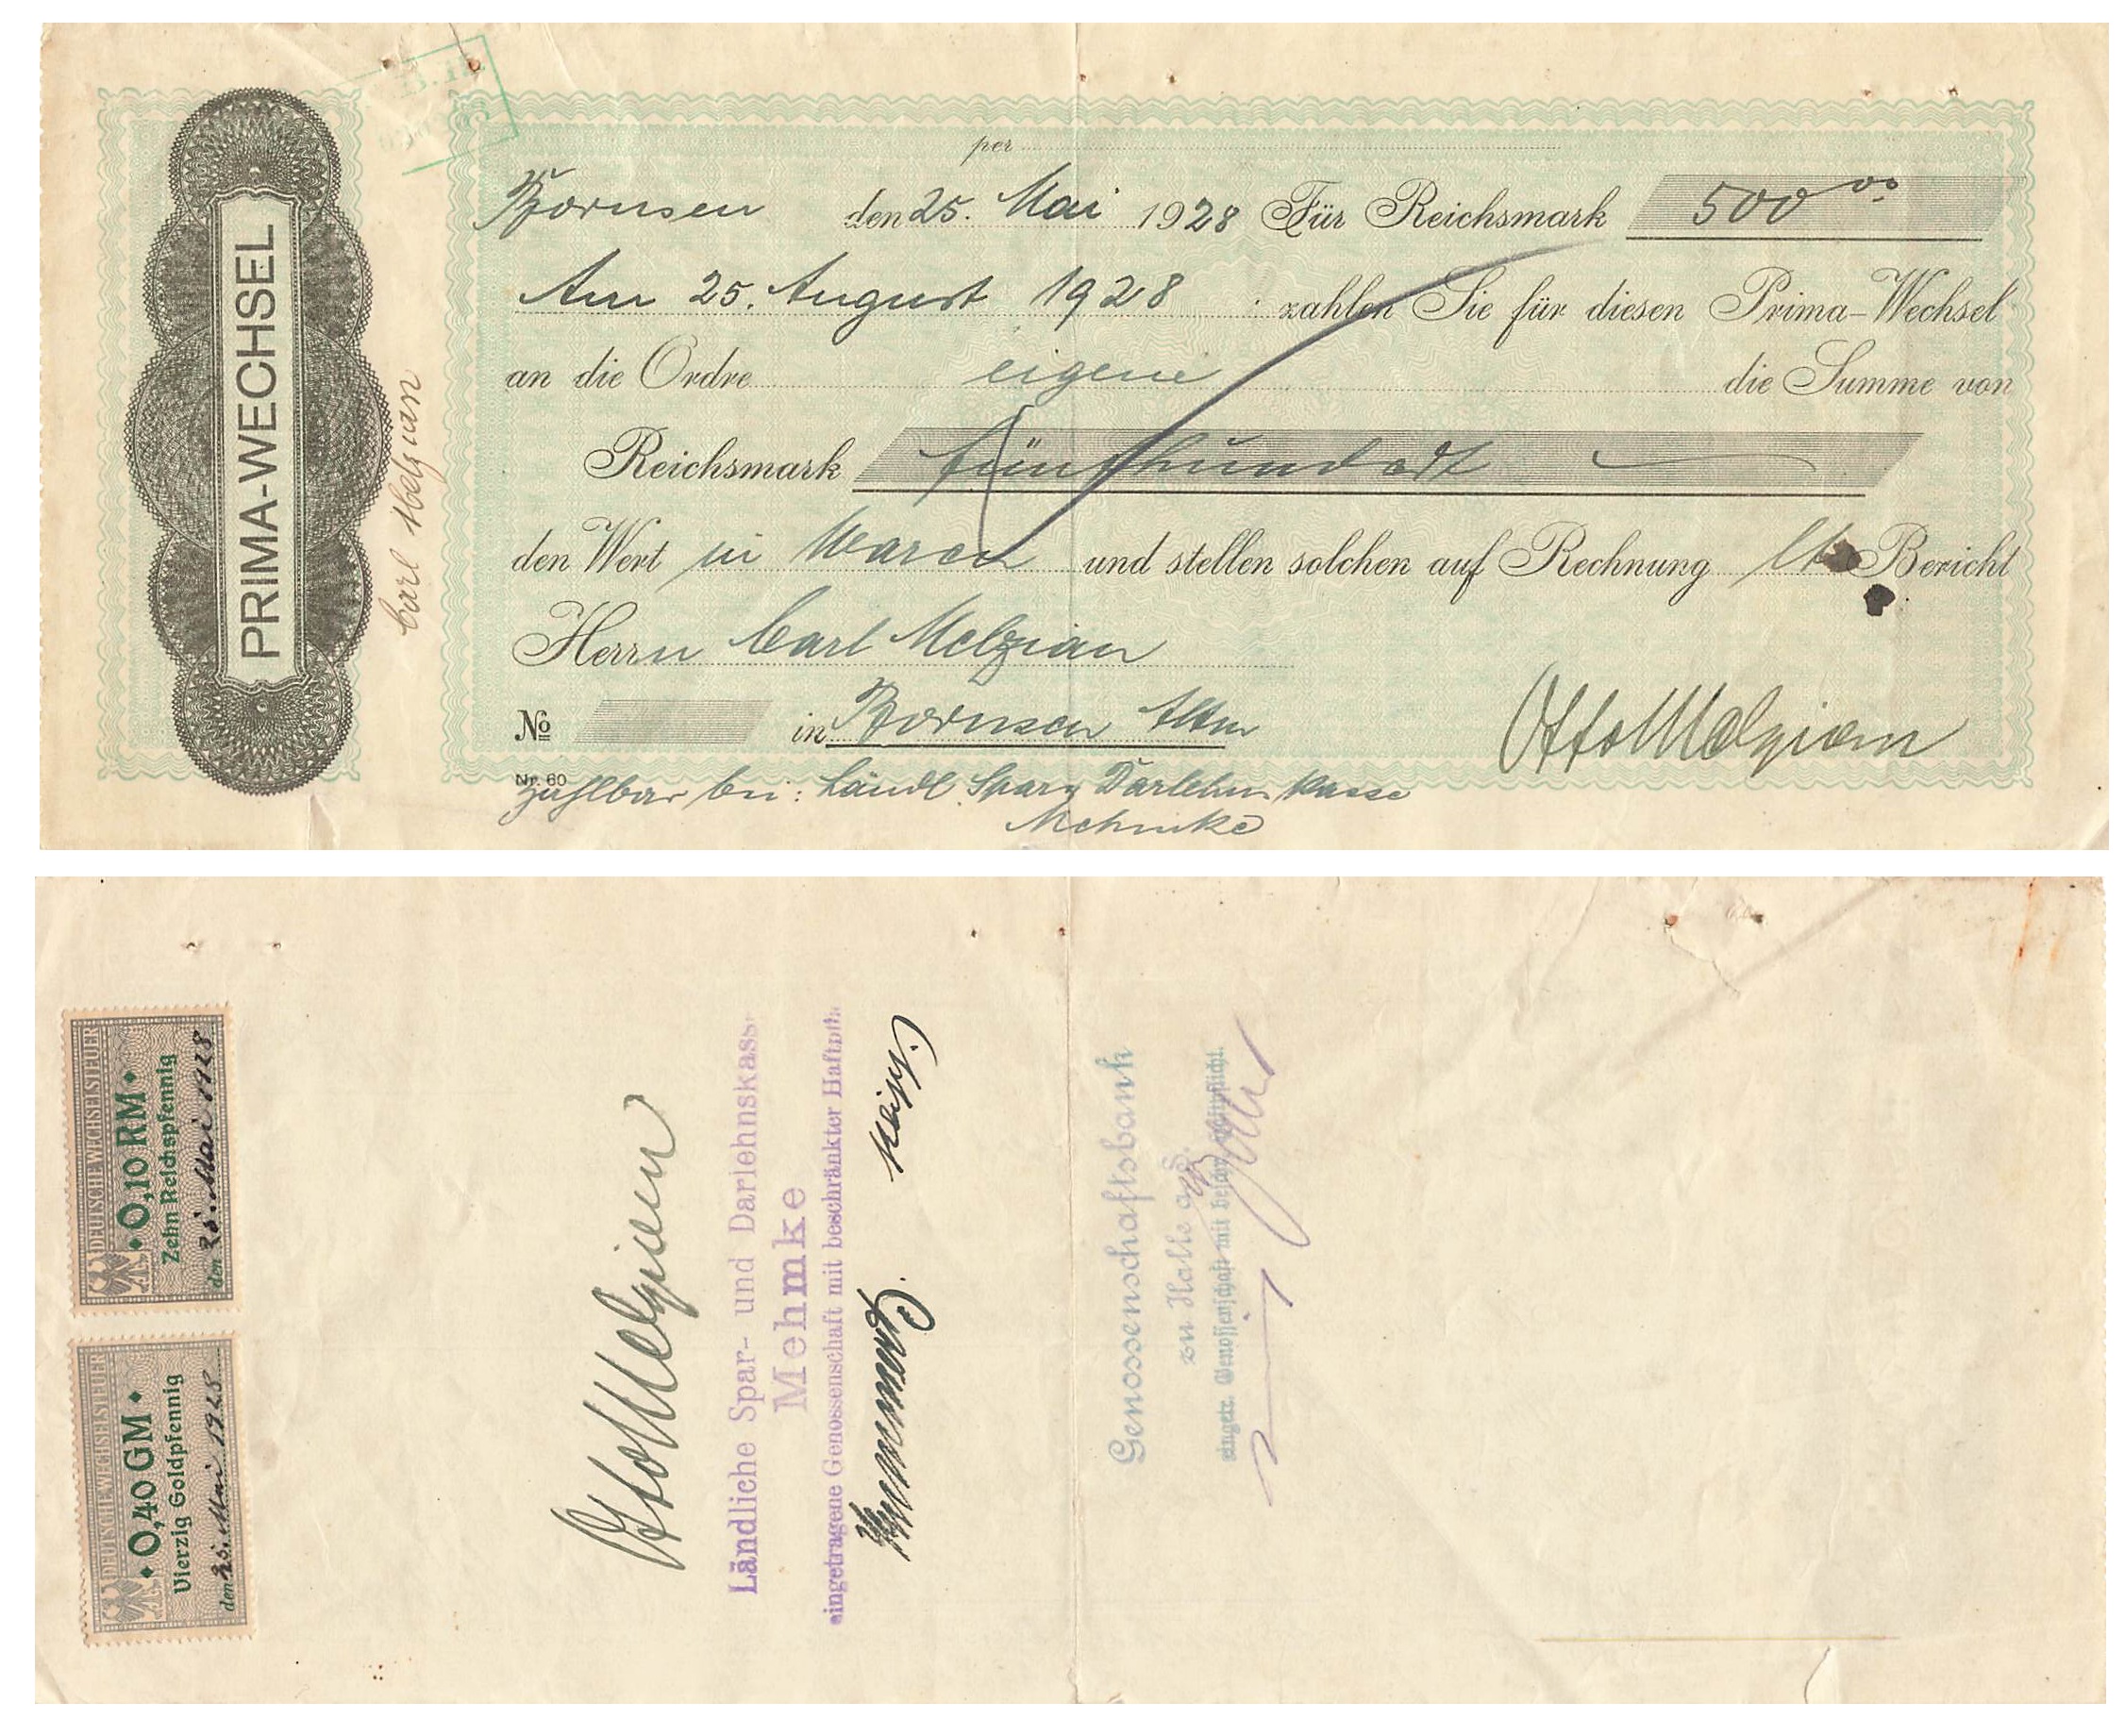 PRIMA-WECHSEL
Carl Melzian
per
Bornsen den 25. Mai 1928 Für Reichsmark 500 00
Am 25. August 1928 zahlen Sie für diesen Prima-Wechsel
an die Ordre eigene die Summe von
Reichsmark fünfhundert
den Wert in Waren und stellen solchen auf Rechnung lt. Bericht
Herrn Carl Melzian
No in Bornsen Altm
Nr. 60
Otto Melzian
zahlbar bei: Ländl. Spar u Darlehnskasse
Mehmke
DEUTSCHE WECHSELSTEUER
0,10 RM
Zehn Reichspfennig
den 25. Mai 1928
DEUTSCHE WECHSELSTEUER
0,40 GM
Vierzig Goldpfennig
den 25. Mai 1928
Otto Melzian
Ländliche Spar- und Darlehnskasse
Mehmke
eingetragene Genossenschaft mit beschränkter Haftpfl.
Genossenschaftsbank
zu Halle a/S.
eingetr. Genossenschaft mit beschr. Haftpflicht.